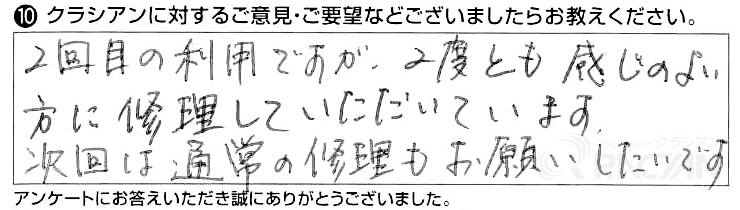 ⑩ クラシアンに対するご意見・ご要望などございましたらお教えください。
2回目の利用ですが、2度とも感じのよい
方に修理していただいています。
次回は通常の修理もお願いしたいです
アンケートにお答えいただき誠にありがとうございました。